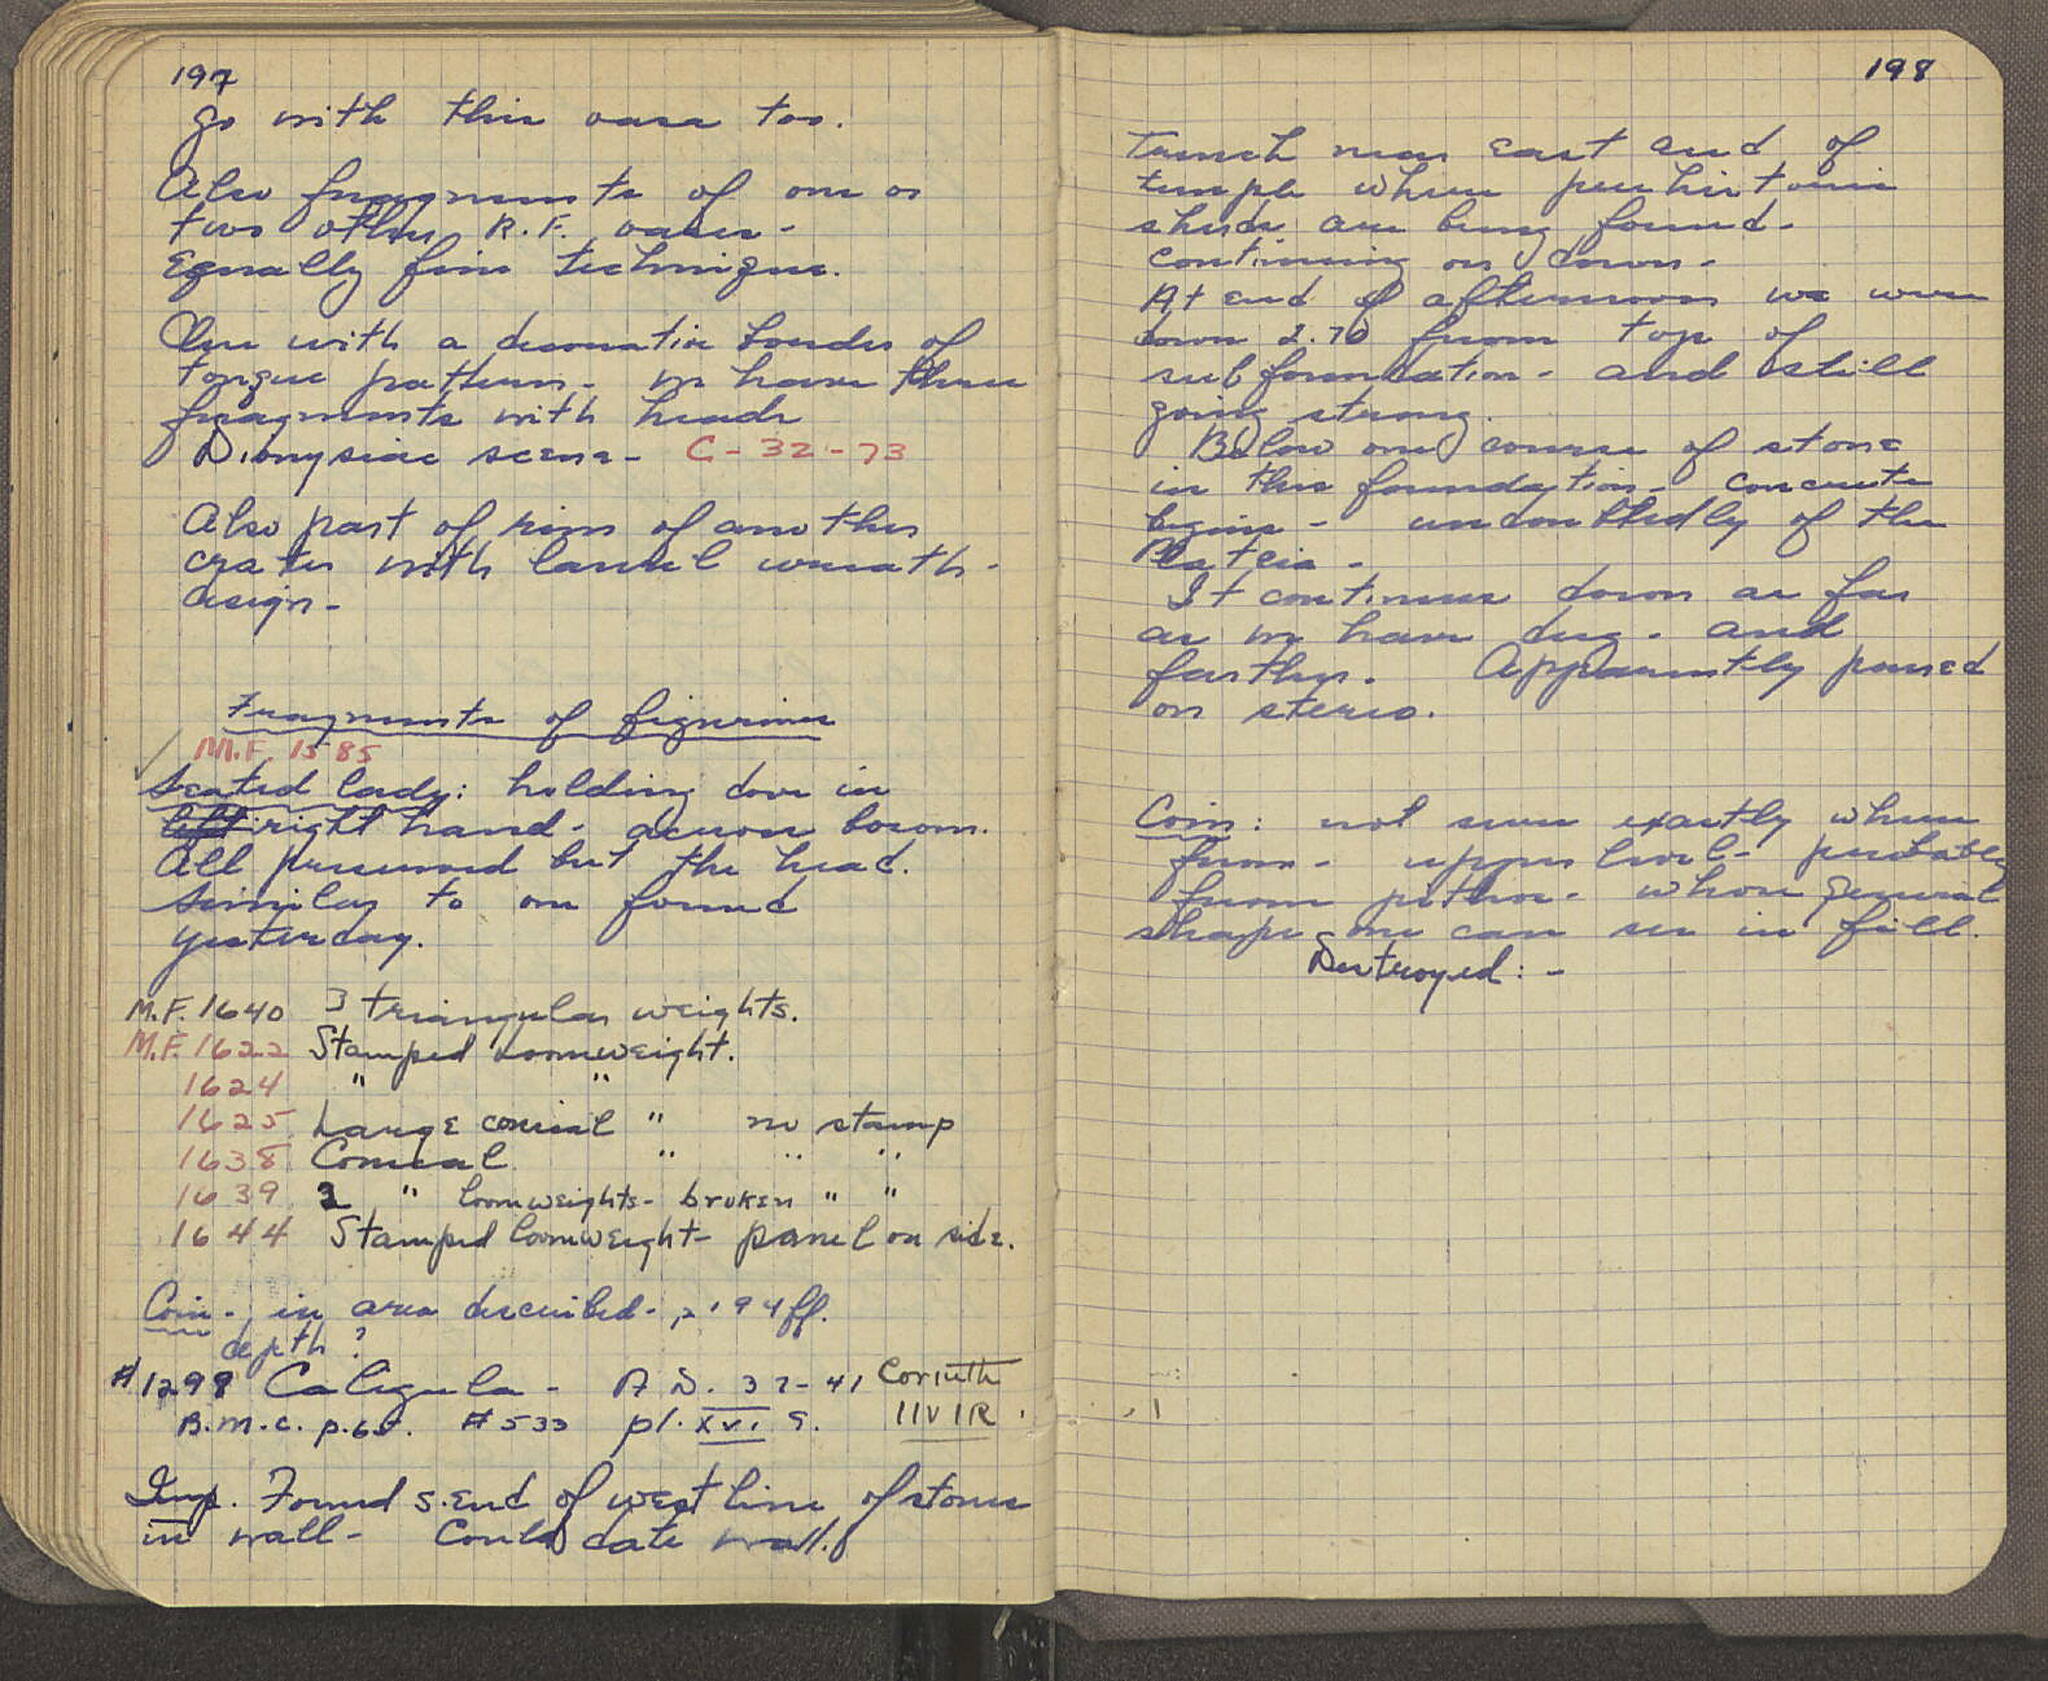 197
go with this vase too.
Also fragments of one or
two other R.F. vases -
Equally fine technique.
One with a decorative border of
tongue pattern - we have three
fragments with heads
Dionysiac scene - C-32-73
Also part of rim of another
crater with laurel wreath -
design -
Fragments of figurines
M.F. 1585
Seated lady: holding dove in
left right hand - across bosom.
All preserved but the head.
Similar to one found
yesterday.
M.F. 1640 3 triangular weights.
M.F. 1622 Stamped loomweight.
1624 " "
1625 Large conical " no stamp
1638 Conical " " "
1639 2 " loomweights - broken " "
1644 Stamped loomweight - panel on side.
Coin - in area described - p 194 ff.
depth ?
#1298 Caligula - A.D. 37-41 Corinth
B.M.C. p. #533 pl. XVI 9. IIVIR
Imp. Found S. End of west line of stones
in wall - Could date wall.
198
Trench near east end of
temple where prehistoric
sherds are being found -
continuing on down -
At end of afternoon we were
down 2.70 from top of
subfoundation - and still
going strong.
Below one course of stone
in this foundation - concrete
begins - undoubtedly of the
Plateia -
It continues down as far
as we have dug - and
farther. Apparently poured
on stereo.
Coin: not sure exactly where
from - upper level - probably
from pithos - whose general
shape one can see in fill.
Destroyed: -